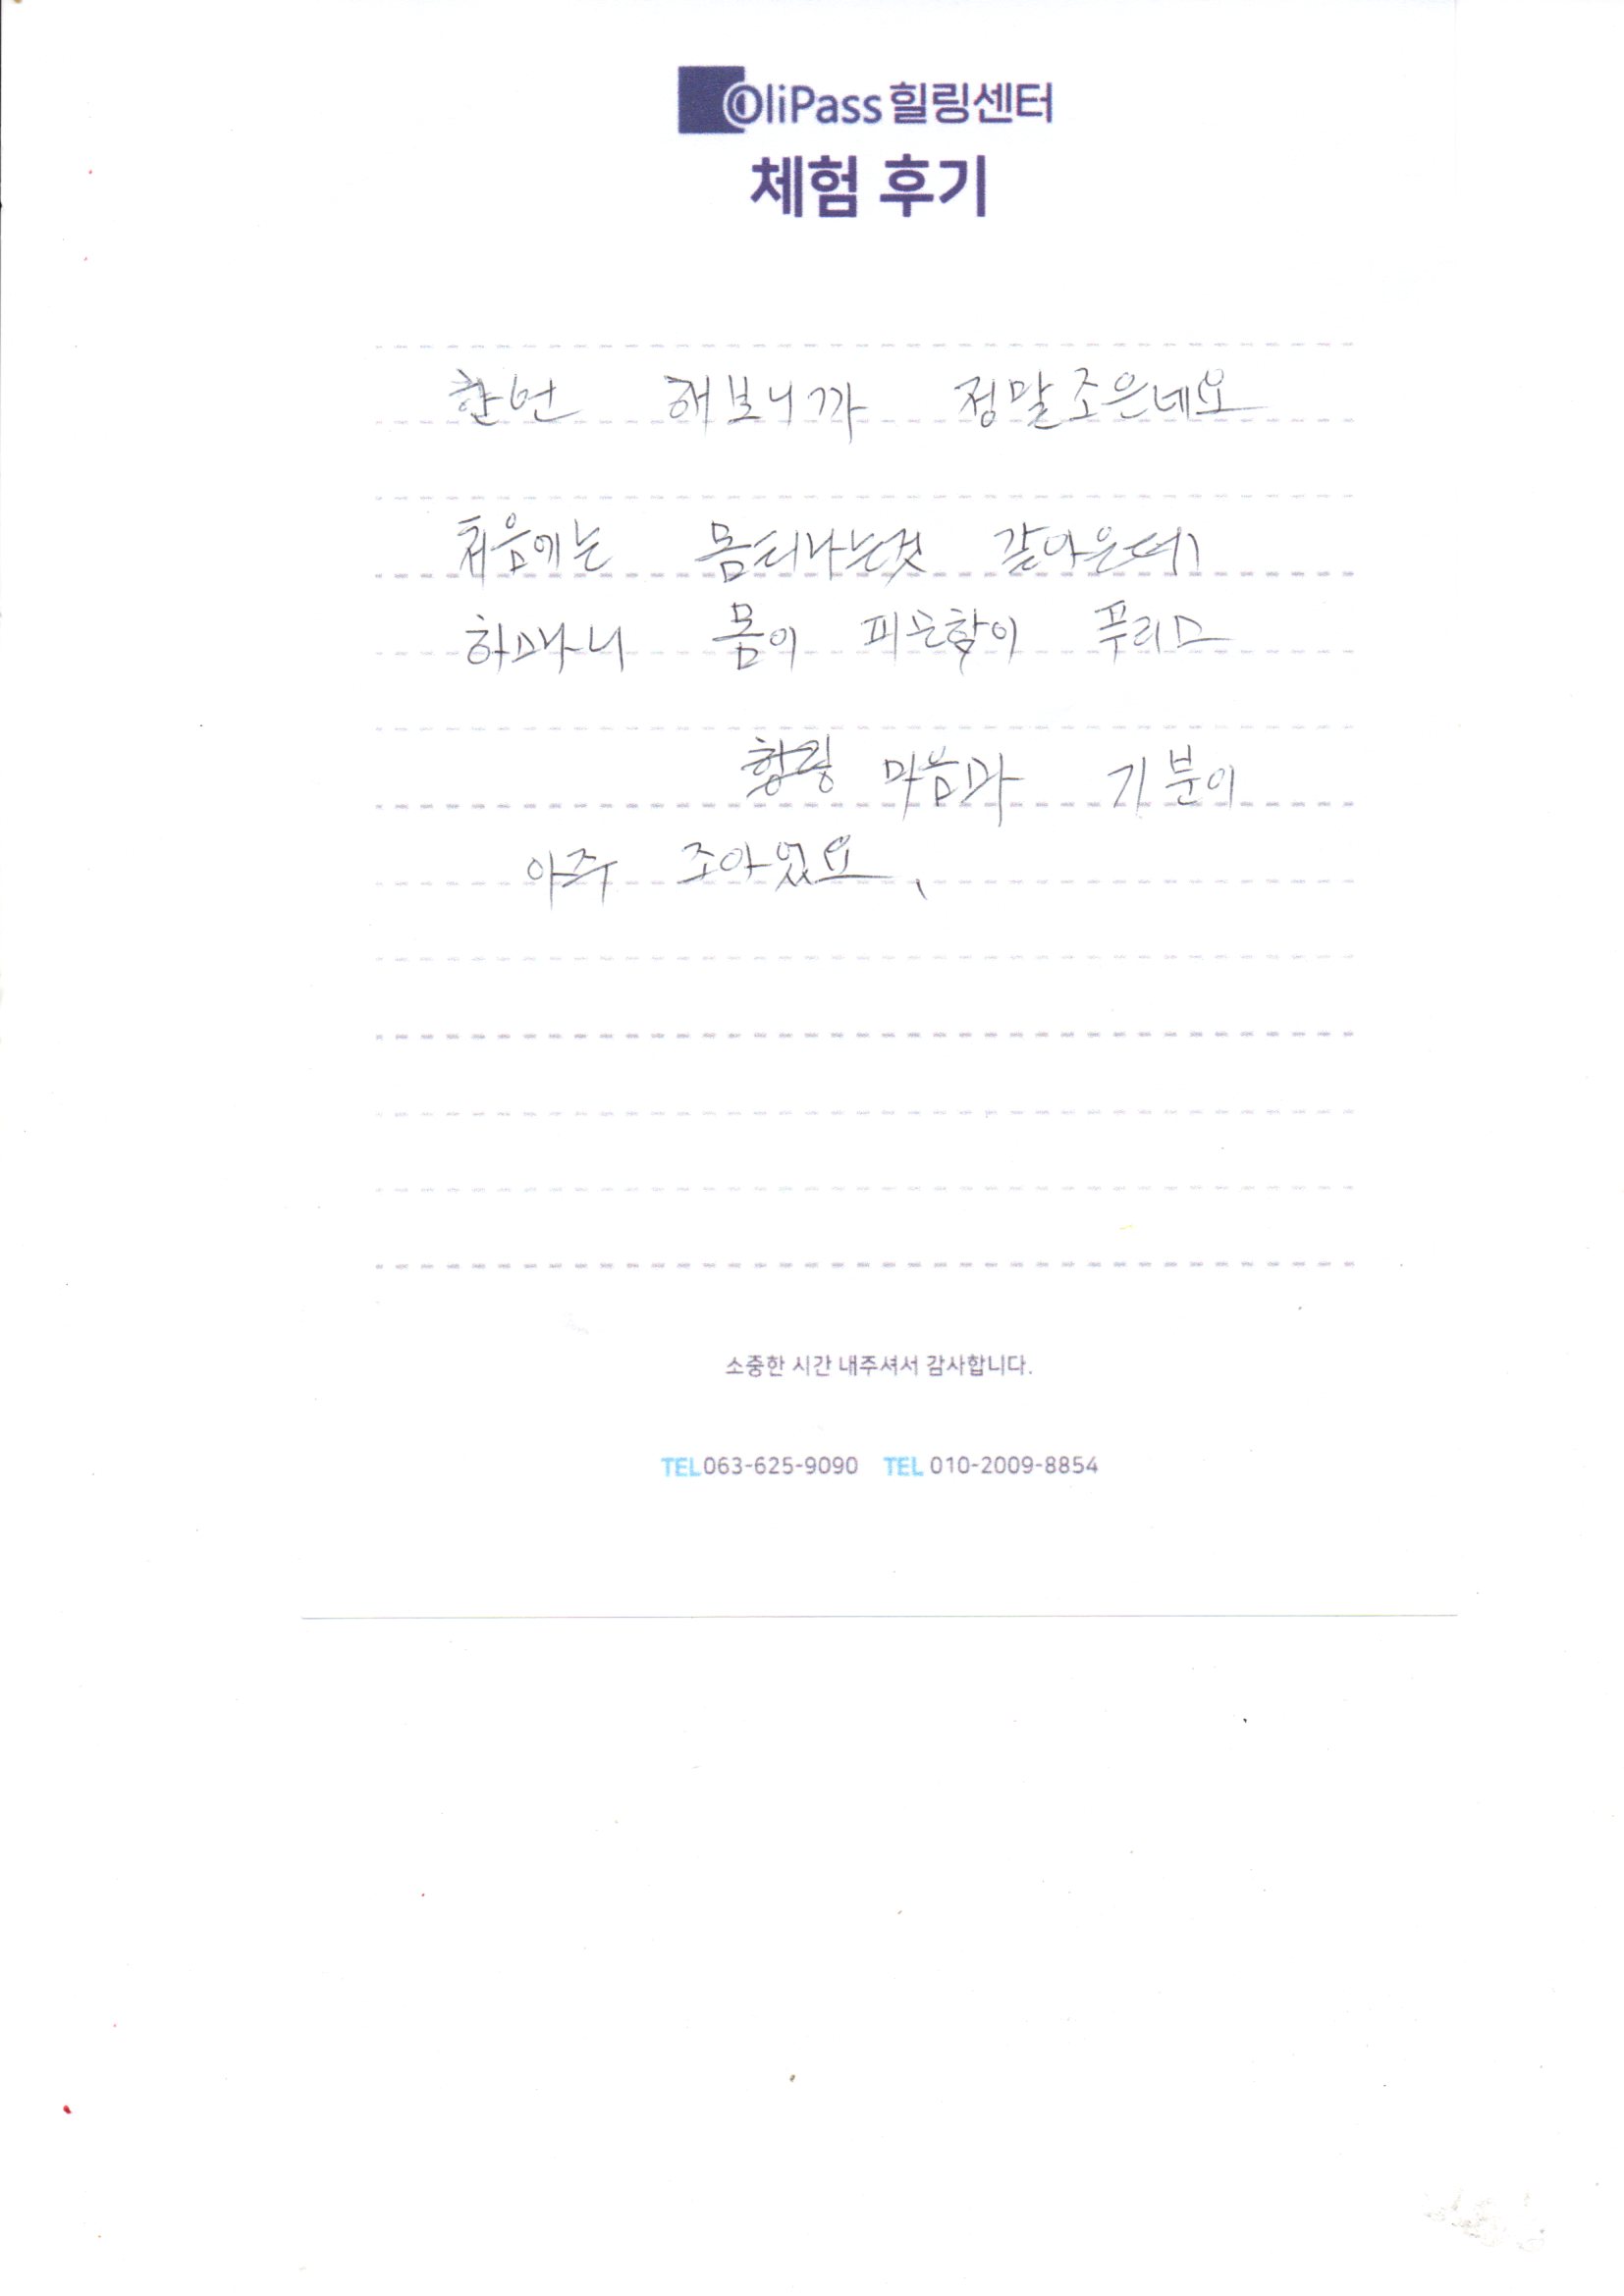 OliPass 힐링센터
체험 후기
한번 해보니까 정말조은네요
처음에는 몸티나는것 같아은데
하매니 몸이 피는함이 푸리고
힐링 마음과 기분이
아주 조아있요.
소중한 시간 내주셔서 감사합니다.
TEL 063-625-9090 TEL 010-2009-8854